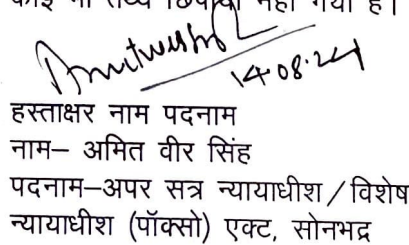 कोई भी तथ्य छिपाया नहीं गया है।
14.08.24
हस्ताक्षर नाम पदनाम
नाम– अमित वीर सिंह
पदनाम–अपर सत्र न्यायाधीश / विशेष
न्यायाधीश (पॉक्सो) एक्ट, सोनभद्र